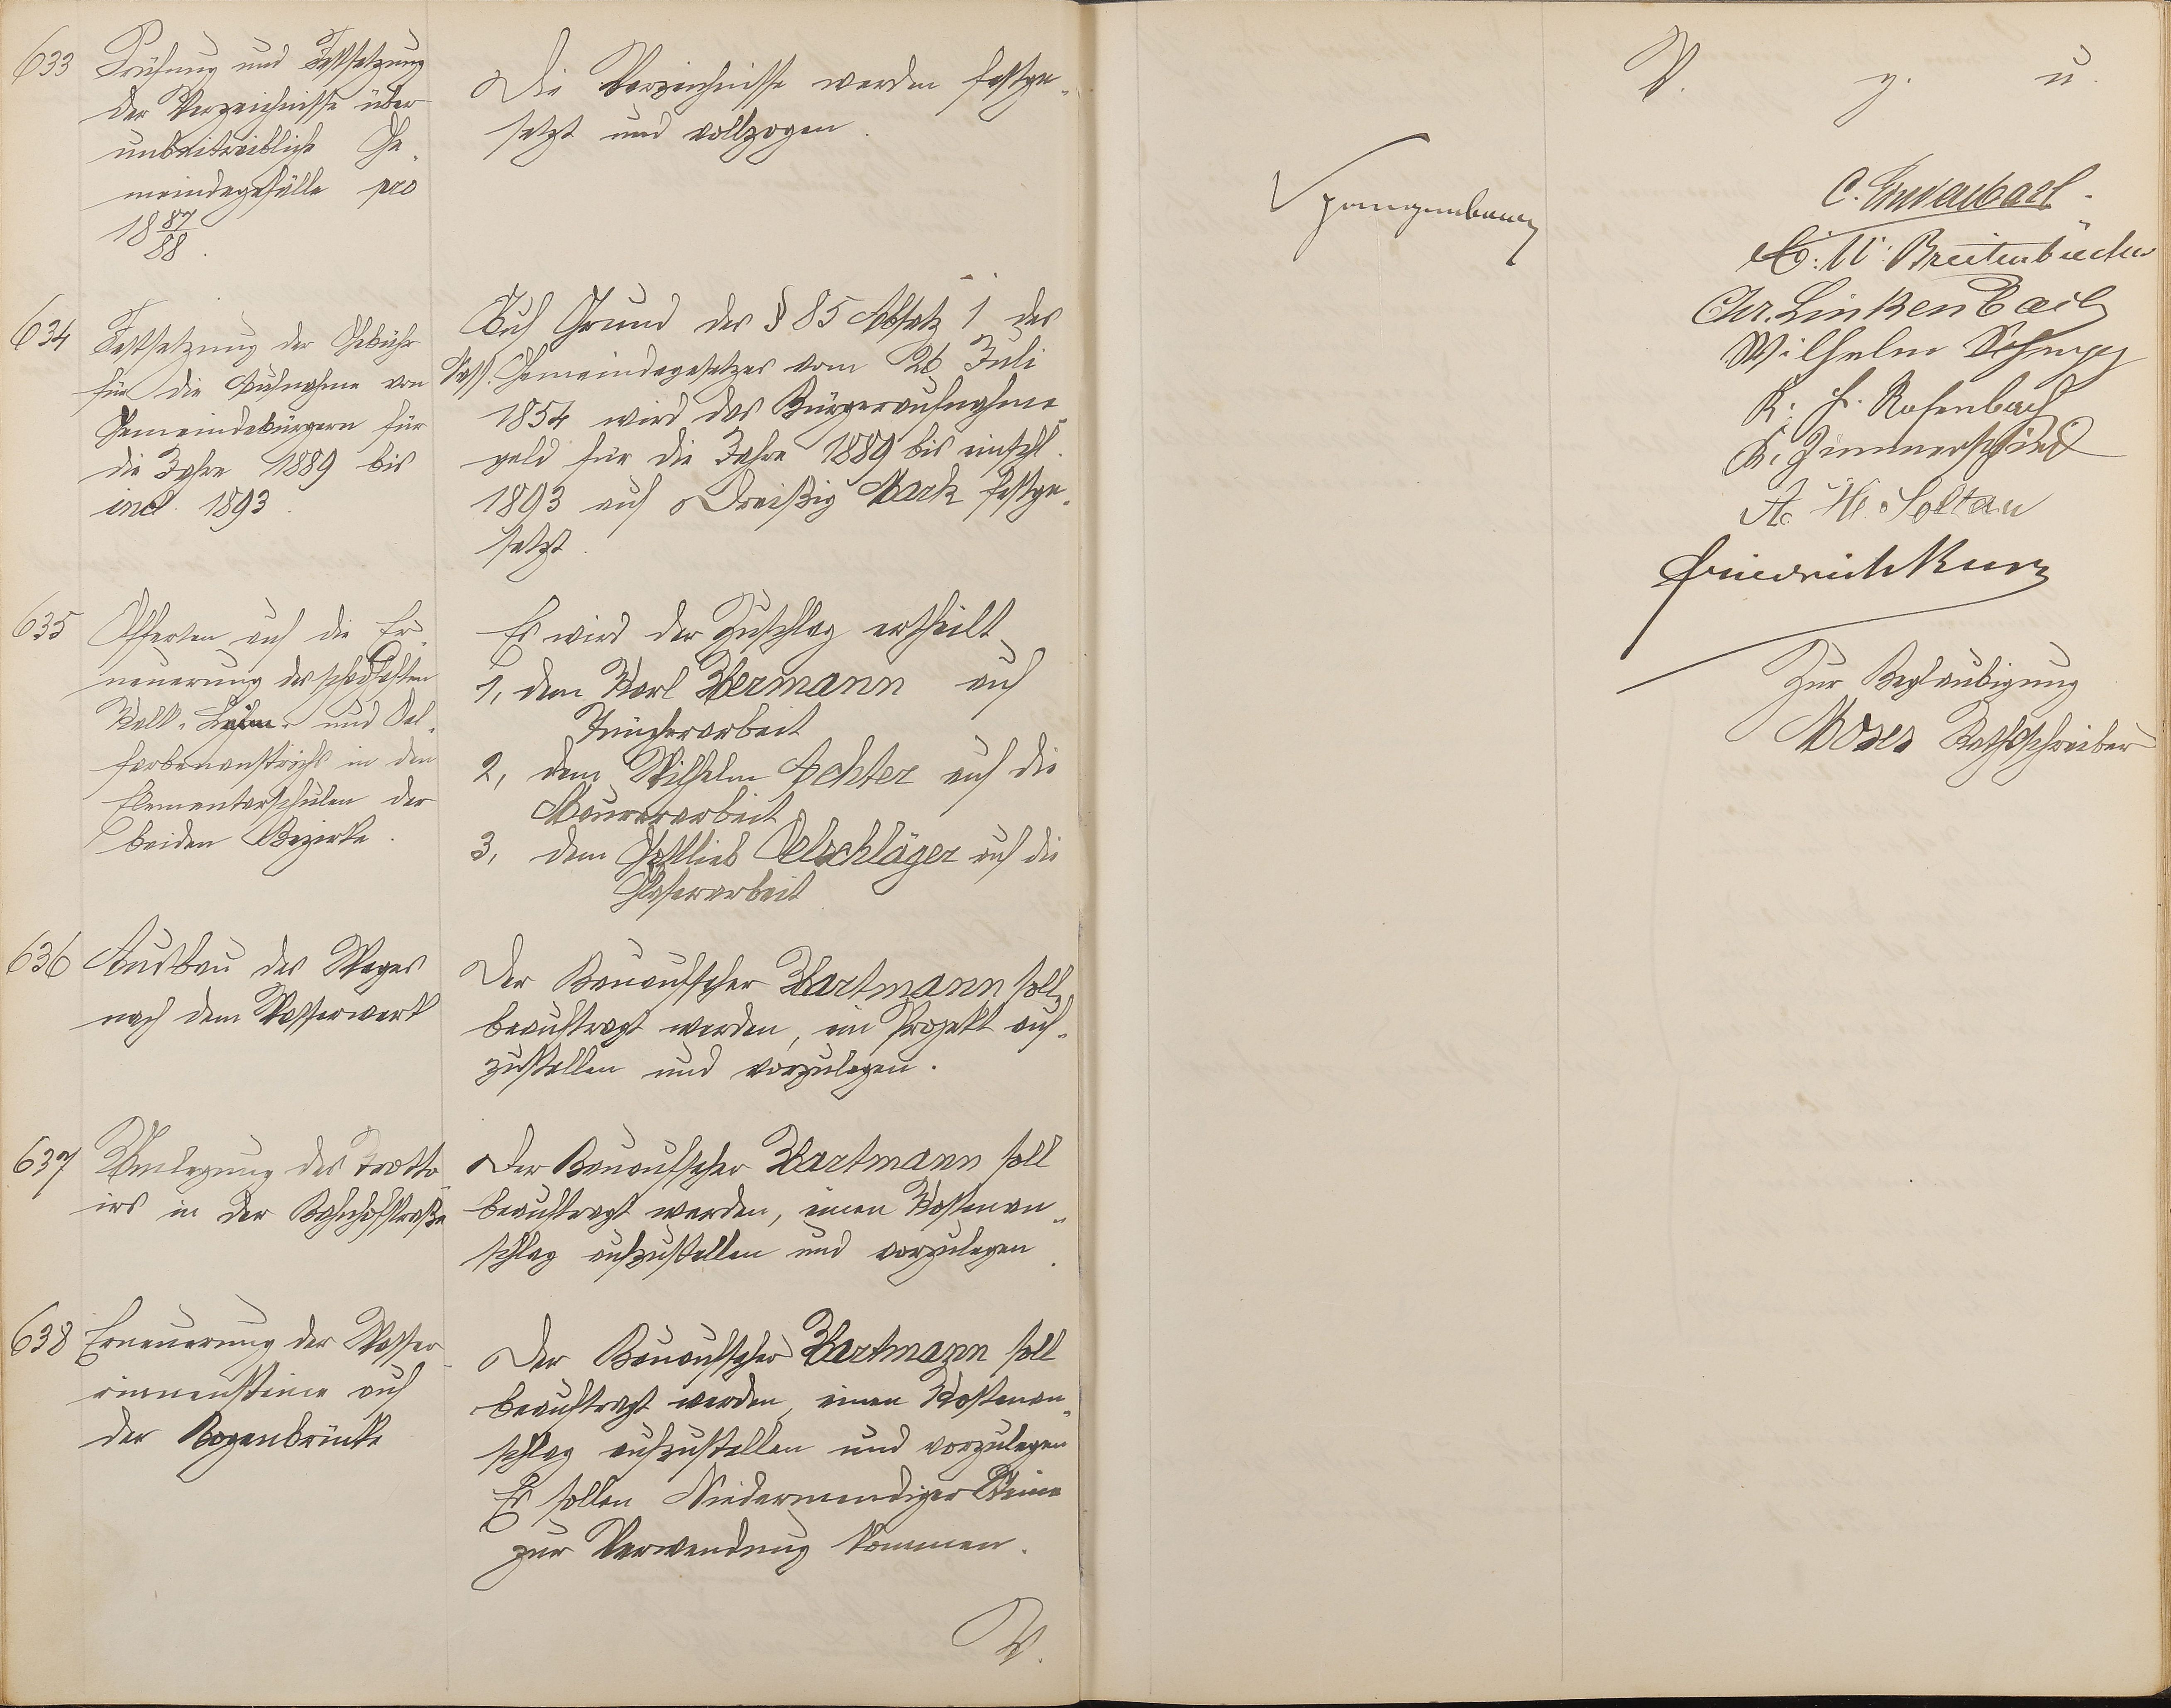 633
Prüfung und Festsetzung
der Verzeichnisse über
unbeitreibliche Ge-
meindegefälle pro
18 87/88.
Die Verzeichnisse werden festge-
setzt und vollzogen.
634
Festsetzung der Gebühr
für die Aufnahme von
Gemeindebürgern für
die Jahre 1889 bis
incl. 1893.
Auf Grund des § 85 Absatz 1 des
Nass. Gemeindegesetzes vom 26 Juli
1854 wird das Bürgeraufnahme-
geld für die Jahre 1889 bis einschl.
1893 auf Dreißig Mark festge-
setzt.
635
Offerten auf die Er-
neuerung des schadhaften
Kalk-, Leim- und Oel-
farbenanstrichs in den
Elementarschulen der
beiden Bezirke.
Es wird der Zuschlag ertheilt
1, dem Karl Hermann auf
Tüncherarbeit
2, dem Wilhelm Achter auf die
Maurerarbeit
3, dem Gottlieb Oelschläger auf die
Glaserarbeit
636
Ausbau des Weges
nach dem Wasserwerk
Der Bauaufseher Hartmann soll
beauftragt werden, ein Projekt auf-
zustellen und vorzulegen.
637
Umlegung des Trotto-
irs in der Bahnhofstraße
Der Bauaufseher Hartmann soll
beauftragt werden, einen Kostenan-
schlag aufzustellen und vorzulegen.
638
Erneuerung der Wasser-
rinnensteine auf
der Bogenbrücke
Der Bauaufseher Hartmann soll
beauftragt werden, einen Kostenan-
schlag aufzustellen und vorzulegen
Es sollen Niedermendiger Steine
zur Verwendung kommen.
V.
V. g. u.
Spangenberg
C.
Breitenbücher
Chr. Linkenbach
Wilhelm
K. F. Rosenbach
K. Zimmerschied
A. H. Soltau
Friedrich Kurz
Zur Beglaubigung
Moses Rathschreiber